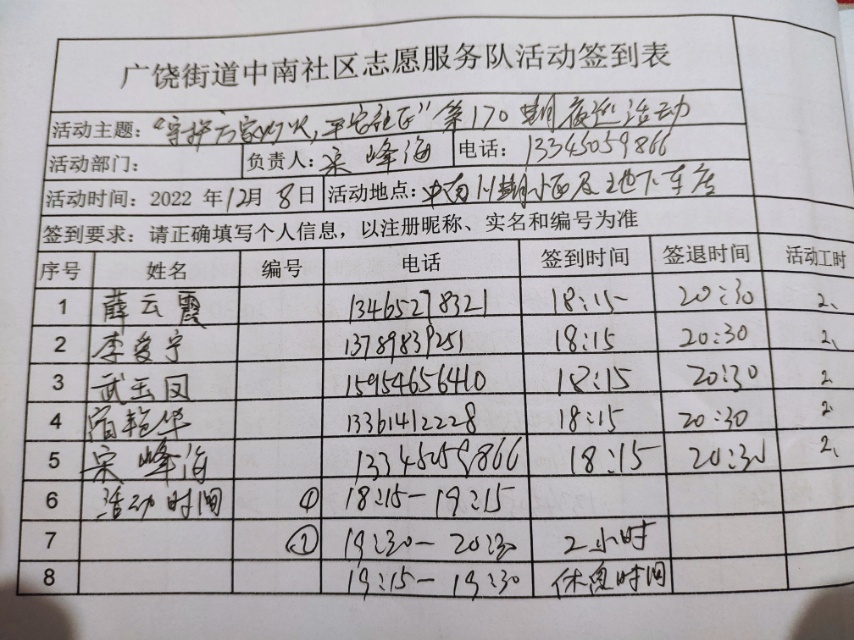 广饶街道中南社区志愿服务队活动签到表
活动主题：“守护万家灯火，平安社区”第170期夜巡活动
活动部门： 负责人：宋峰海 电话：13345059866
活动时间：2022 年12月8日 活动地点：中南小区及地下车库
签到要求：请正确填写个人信息，以注册昵称、实名和编号为准
序号 姓名 编号 电话 签到时间 签退时间 活动工时
1 薛云霞 13465278321 18:15 20:30 2、
2 李爱宁 13789839251 18:15 20:30 2、
3 武玉凤 15954656410 18:15 20:30 2
4 宿艳华 13361412228 18:15 20:30 2
5 宋峰海 13345059866 18:15 20:30 2、
6 活动时间 ① 18:15-19:15
7 19:30-20:30 2小时
8 19:15-19:30 休息时间